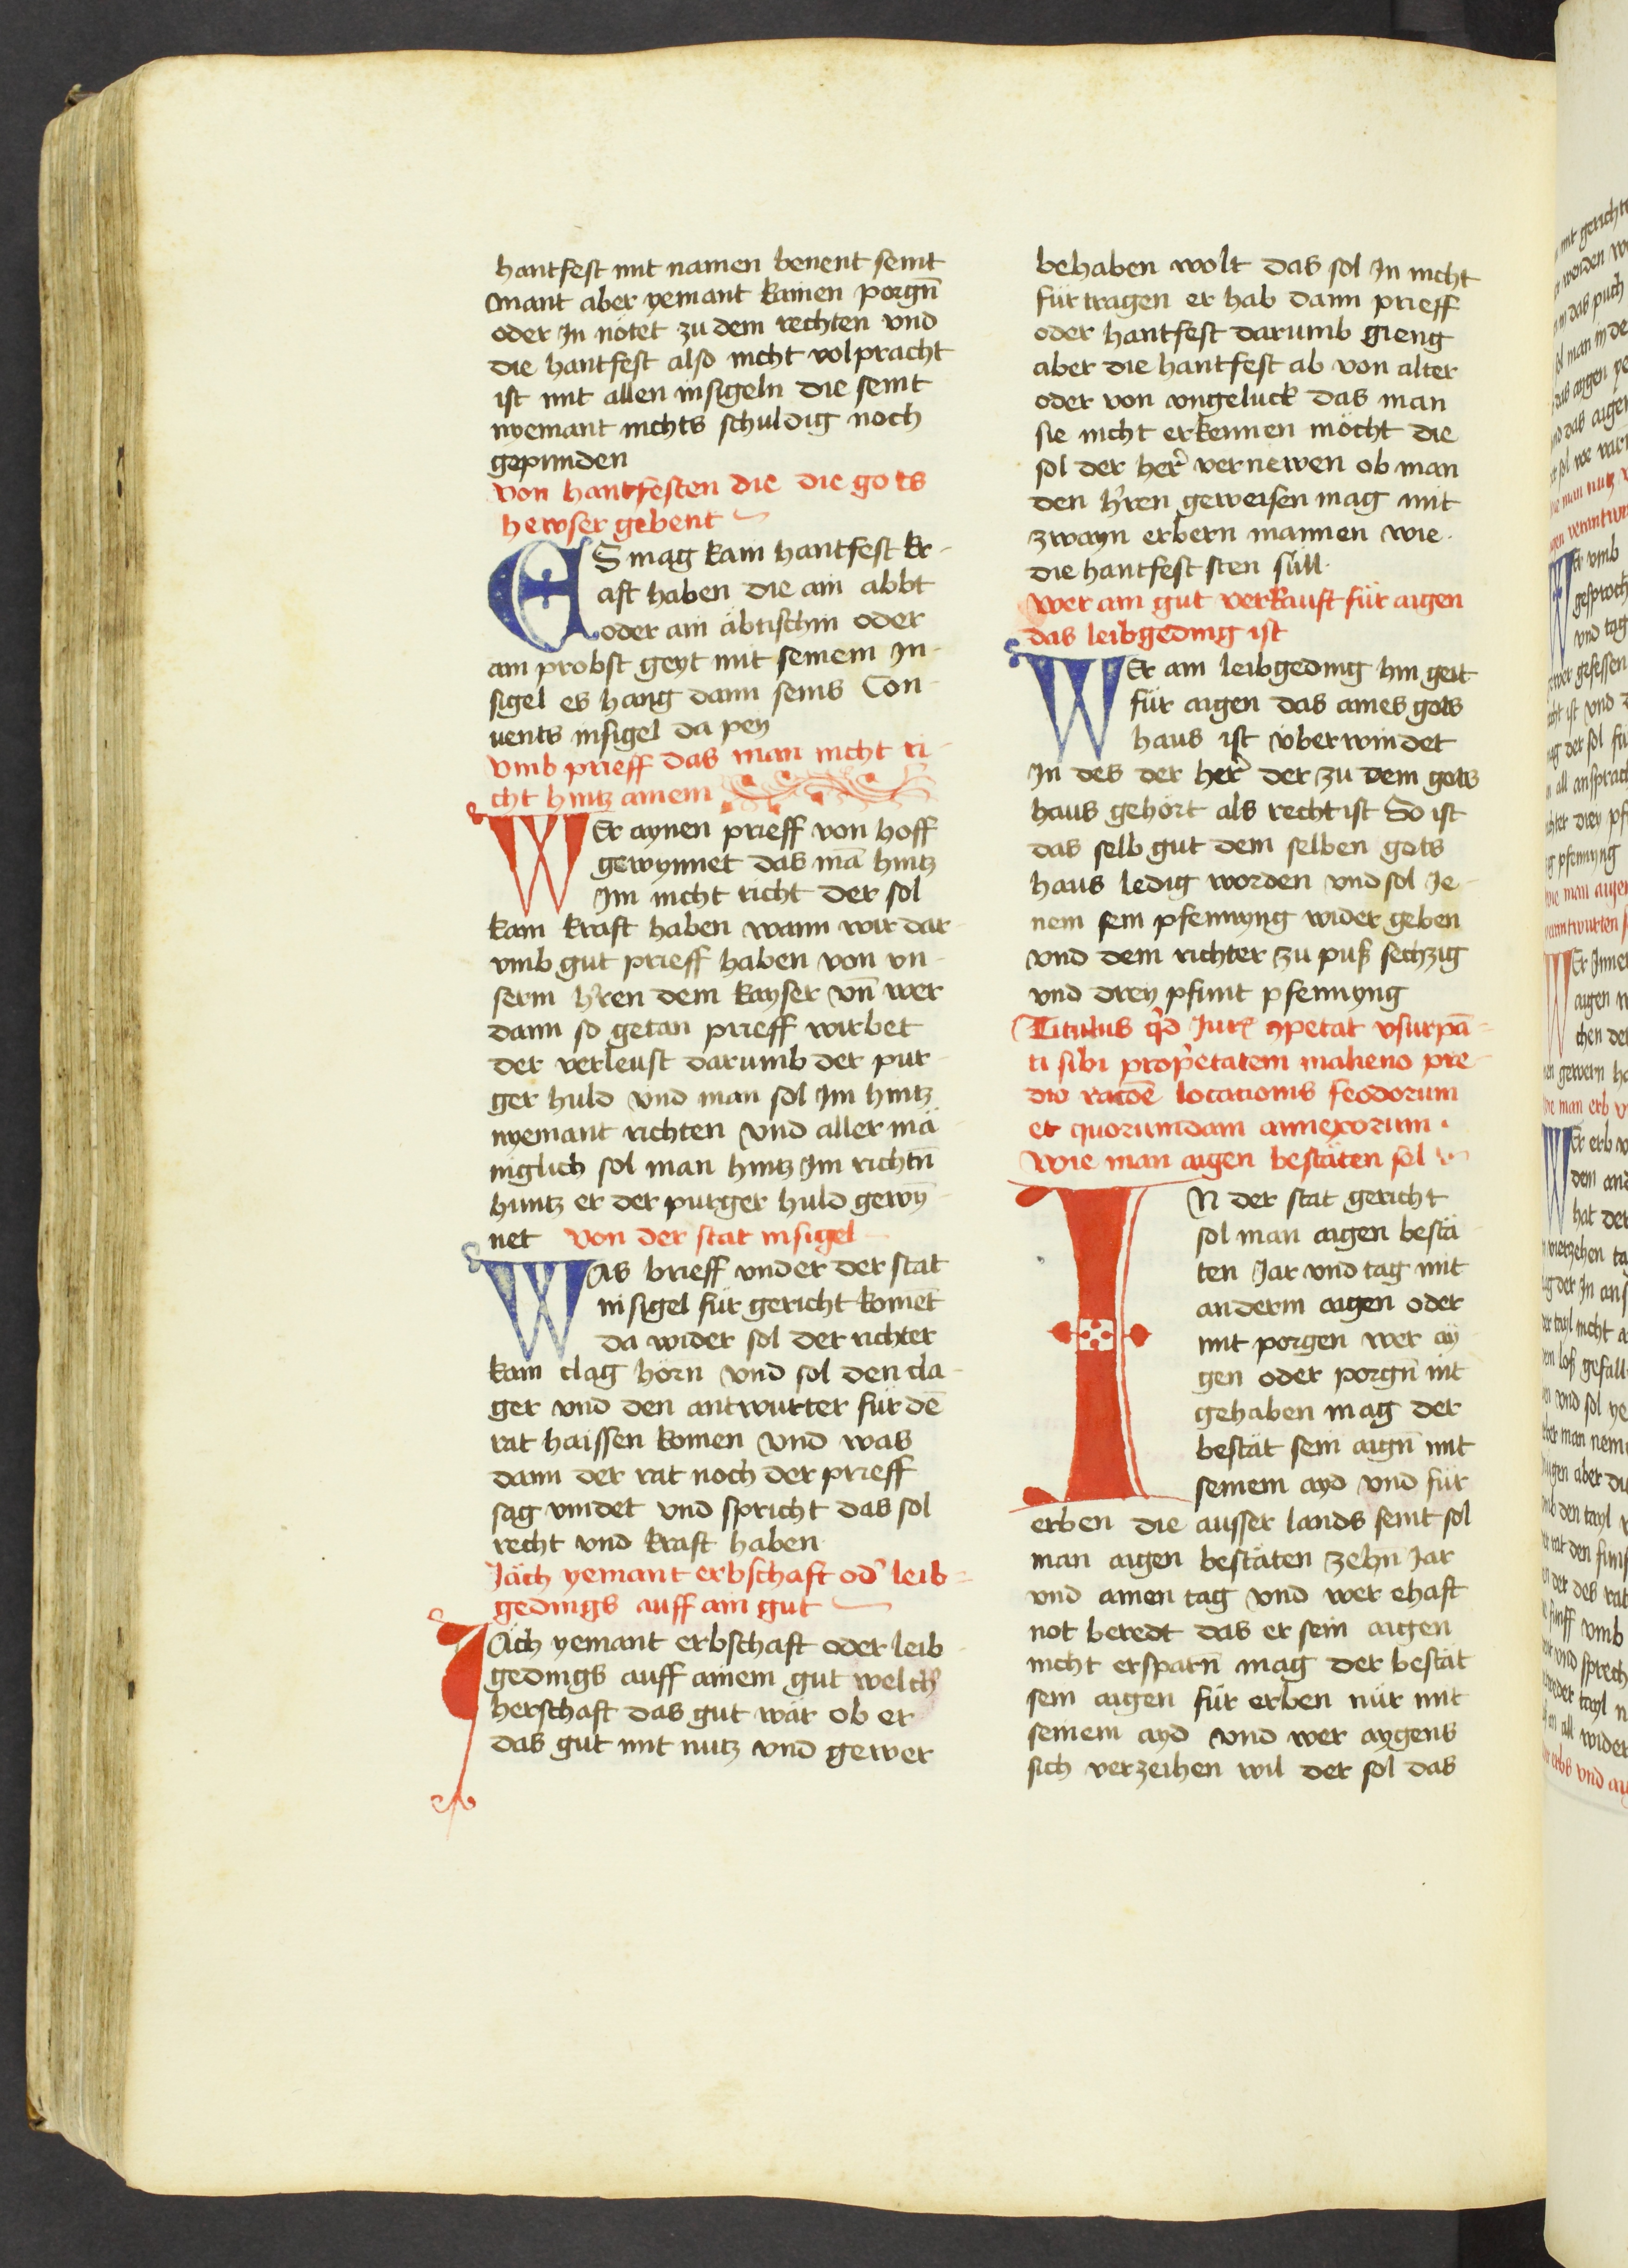 hantfest mit namen benent seint
Mant aber yemant kainen porgn̄
oder In nötet zu dem rechten vnd
die hantfest also nicht volpracht
ist mit allen insigeln die seint
nyemant nichts schuldig noch
gepunden
Von hantfesten die die gots
hewser gebent
ES mag kain hantfest kr-
aft haben die ain abbt
oder ain äbtischin oder
ain probst geyt mit seinem In-
sigel es hang dann seins Con-
uents insigel da pey
Vmb prieff das man nicht ri-
cht hintz ainem
WEr aynen prieff von hoff
gewynnet das mā hintz
Im nicht richt der sol
kain kraft haben wann wir dar-
vmb gut prieff haben von vn-
serm hr̄en dem kayser vn̄ wer
dann so getan prieff wirbet
der verleust darumb der pur-
ger huld vnd man sol Im hintz
nyemant richten vnd aller mä-
niglich sol man hintz Im richtn̄
huntz er der purger huld gewȳ-
net Von der stat insigel
WAs brieff vnder der stat
insigel für gericht komet
da wider sol der richter
kain clag hörn vnd sol den cla-
ger vnd den antwurter für dē
rat haissen komen vnd was
dann der rat noch der prieff
sag vindet vnd spricht das sol
recht vnd kraft haben
Jäch yemant erbschaft od̄ leib=
gedings auff ain gut
JÄch yemant erbschaft oder leib-
gedings auff ainem gut welch
herschaft das gut wär ob er
das gut mit nutz vnd gewer
behaben wolt das sol In nicht
für tragen er hab dann prieff
oder hantfest darumb gieng
aber die hantfest ab von alter
oder von vngeluck das man
sie nicht erkennen möcht die
sol der her̄ vernewen ob man
den hr̄en geweisen mag mit
zwayn erbern mannen wie
die hantfest sten süll.
Wer ain gut verkauft für aigen
das leibgeding ist
WEr ain leibgeding hin geit
für aigen das aines gots
haus ist vberwindet
In des der her̄ der zu dem gots
haus gehört als recht ist So ist
das selb gut dem selben gots
haus ledig worden vnd sol Je-
nem sein pfennyng wider geben
vnd dem richter zu puß sechzig
vnd drey pfunt pfennyng
Titulus qd̄ Iuris ꝯpetat vsurpā=
ti sibi prop̄etatem in alieno pre-
dio racōe locacionis feodorum
et quorumdam annexorum.
Wie man aigen bestäten sol
IN der stat gericht
sol man aigen bestä-
ten Jar vnd tag mit
anderm aigen oder
mit porgen wer ay-
gen oder porgn̄ nit
gehaben mag der
bestät sein aign̄ mit
seinem ayd vnd für
erben die ausser lands seint sol
man aigen bestäten zehn̄ Jar
vnd ainen tag vnd wer ehaft
not beredt das er sein aigen
nicht ersparn̄ mag der bestät
sein aigen für erben nür mit
seinem ayd vnd wer aygens
sich verzeihen wil der sol das